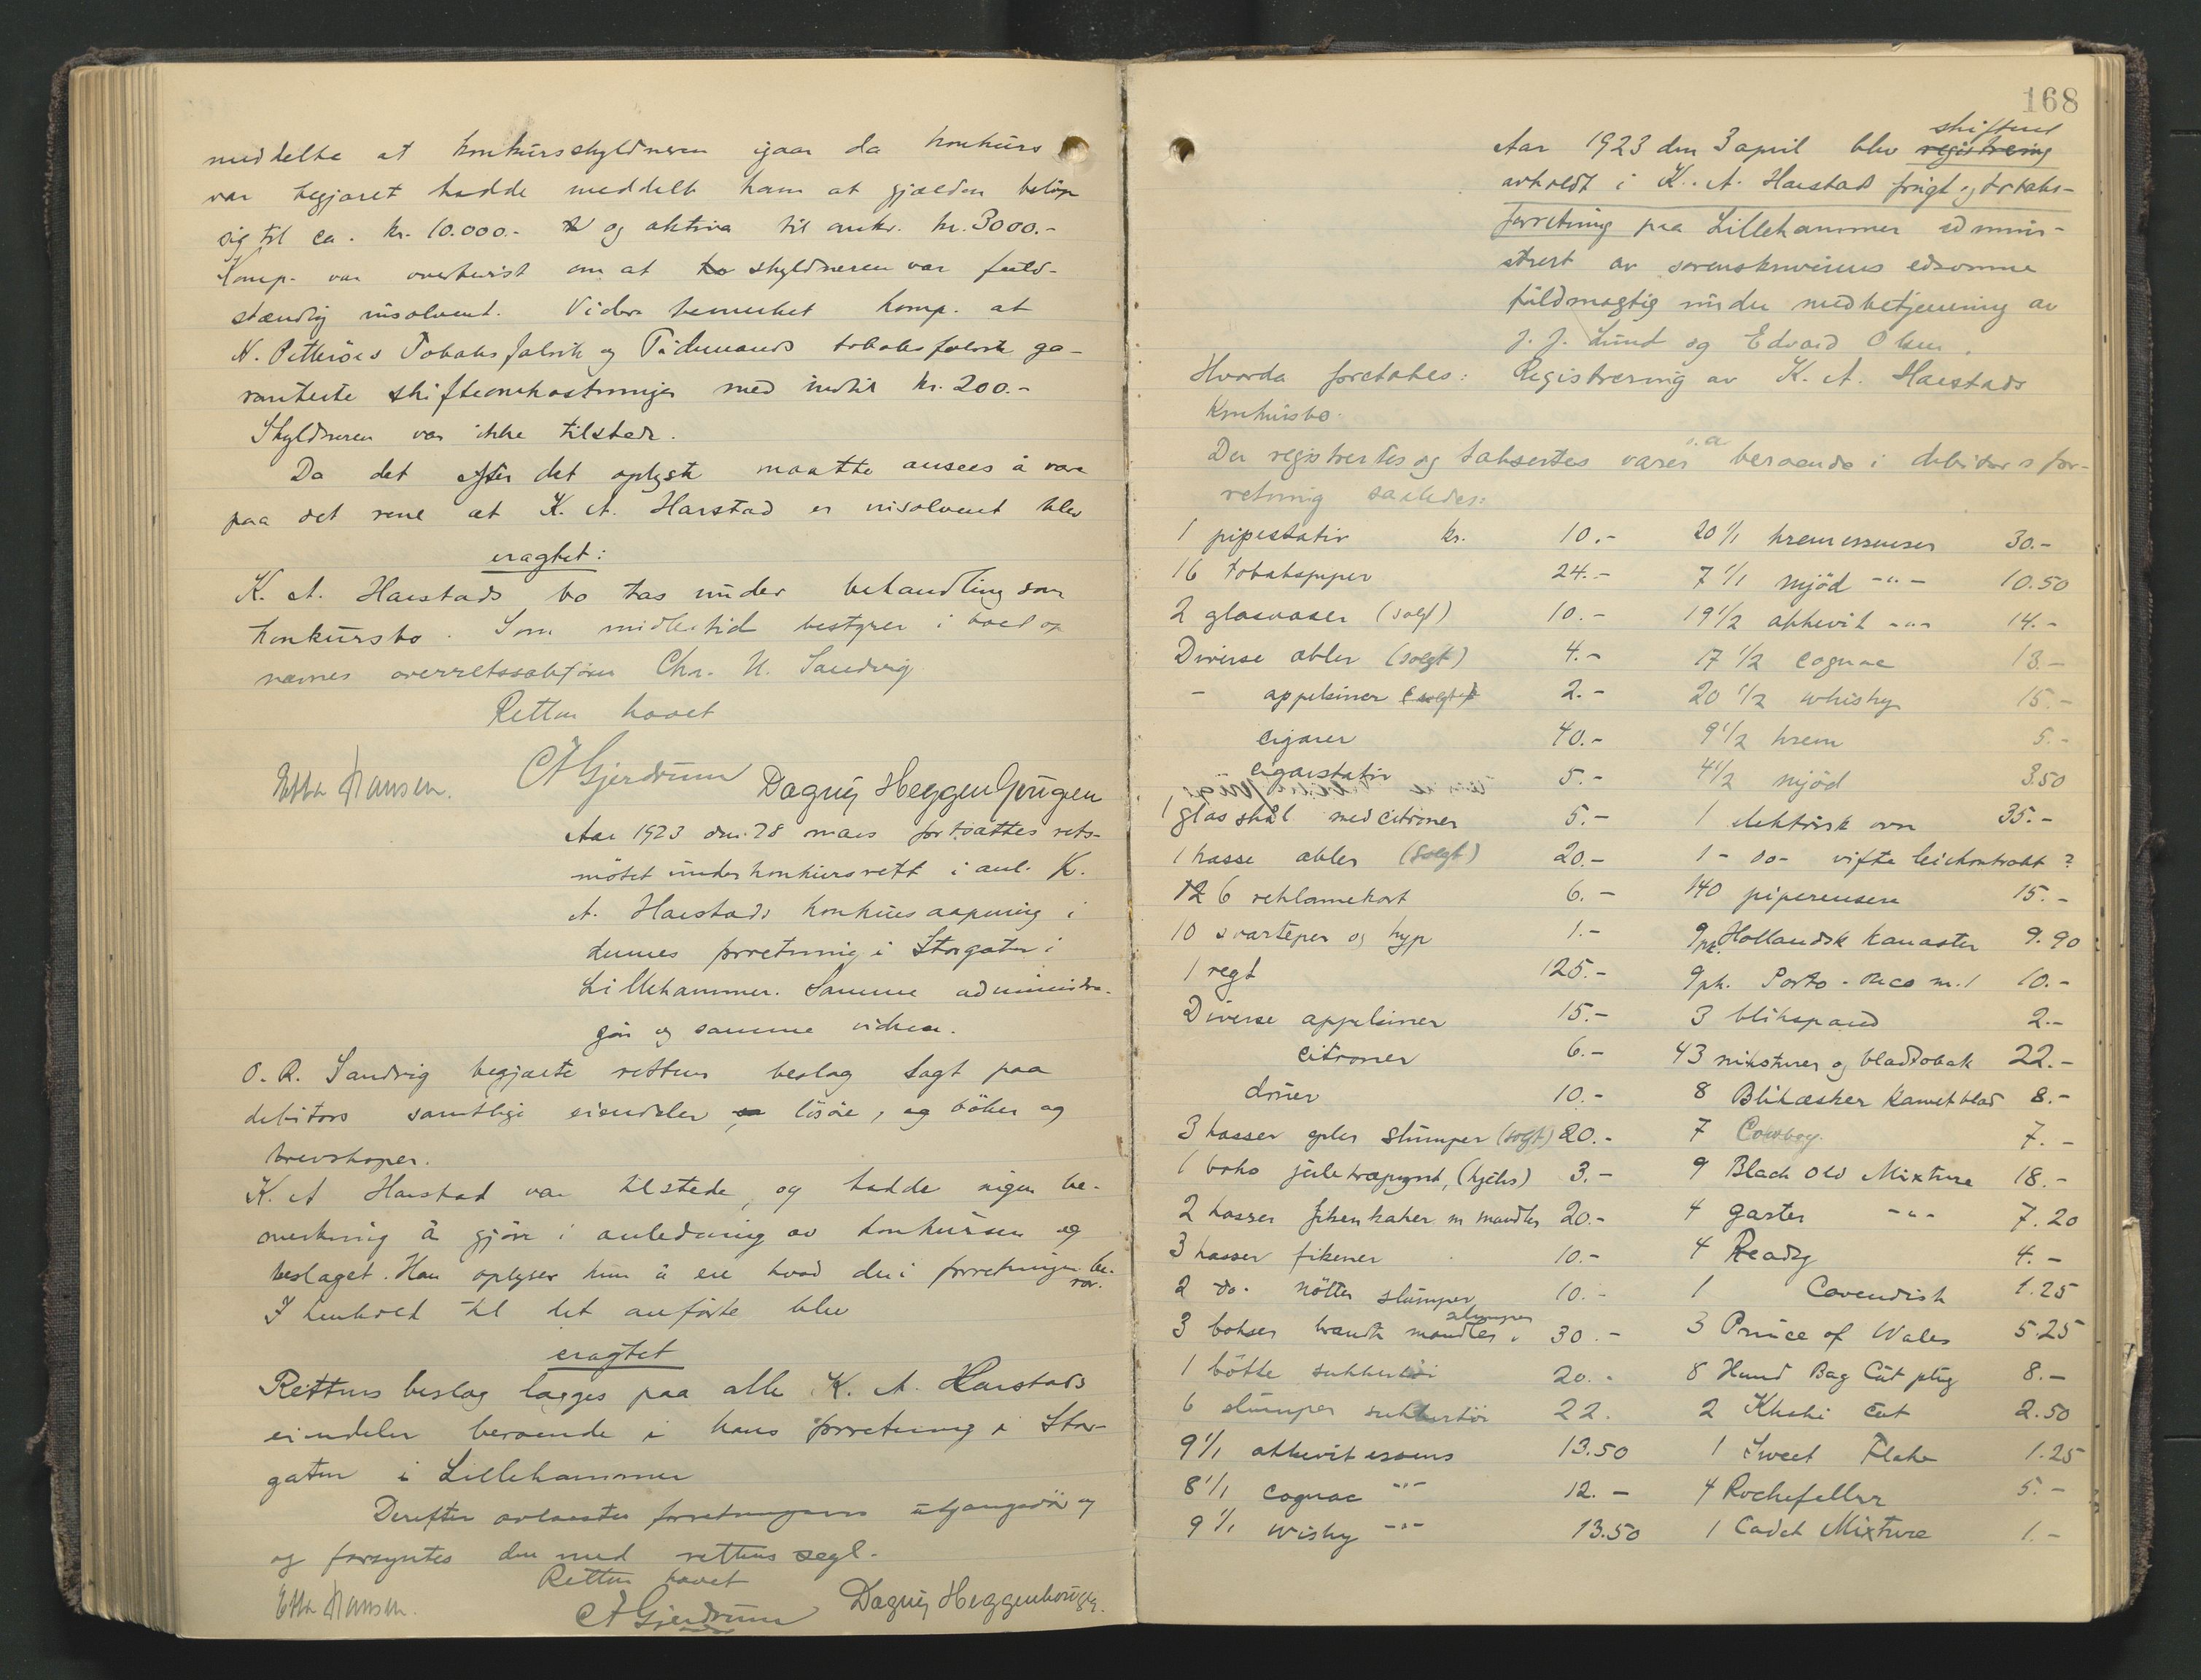 meddelte at konkursskyldneren igaar da konkurs
var begjæret hadde meddelt ham at gjælden beløp
sig til ca. kr. 10.000.- og aktiva til ca. kr. 3000.-
Komp. var overbevist om at skyldneren var fuld-
stændig insolvent. Videre bemerket komp. at
N. Petterøes Tobaksfabrik og Tidemands tobaksfabrik ga-
ranterte skifteomkostninger med indtil kr. 200.-
Skyldneren var ikke tilstede.
Da det efter det oplyste maatte ansees å være
paa det rene at K. A. Harstad er insolvent blev
eragtet:
K. A. Harstads bo tas under behandling som
konkursbo. Som midlertid bestyrer i boet op
nævnes overretssakfører Chr. N. Sandvig
Retten hævet
Etta Hansen. CAGjerdrum Dagny Heggenhougen
Aar 1923 den 28 mars fortsattes rets-
møtet under konkursrett i anl. K.
A. Harstads konkursaapning i
dennes forretning i Storgaten i
Lillehammer. Samme administra-
tor og samme vidner.
O. R. Sandvig begjærte rettens beslag lagt paa
debitors samtlige eiendeler løsøre, og bøker og
brevskaper.
K. A Harstad var tilstede, og hadde ingen be-
merkning å gjøre i anledning av konkursen og
beslaget. Han oplyser kun å eie hvad der i forretningen be-
ror.
I henhold til det anførte blev
eragtet
Rettens beslag lægges paa alle K. A. Harstads
eiendeler beroende i hans forretning i Stor-
gaten i Lillehammer
Derefter avlaastes forretningens utgangsdør og
og forsyntes den med rettens segl.
Retten hævet
Etta Hansen. CAGjerdrum Dagny Heggenhougen.
168
Aar 1923 den 3 april blev skifteret
registrering
avholdt i K. A. Harstad frugt og tobaks-
forretning paa Lillehammer adminis-
strert av sorenskriverens edsvorne
fuldmægtig under medbetjening av
J. J. Lund og Edvard Olsen.
Hvorda foretokes: Registrering av K. A. Harstads
Konkursbo.
Der registrertes og taksertes varer o.a. beroende i debitors for-
retning saaledes:
1 pipestativ kr. 10.- 20 1/1 kremessenser 30.-
16 tobakspiper 24.- 7 1/1 mjød -"- 10.50
2 glasvaser (solgt) 10.- 19 1/2 akkevit -"- 14.-
Diverse æbler (solgt) 4.- 17 1/2 cognac 13.-
- appelsiner (solgt) 2.- 20 1/2 whisky 15.-
cigarer 40.- 9 1/2 krem 5.-
cigarstativ 5.- 4 1/2 mjød 3.50
1 glasskål med citroner 5.- 1 elektrisk ovn 35.-
1 kasse æbler (solgt) 20.- 1 - do- vifte leiekontrakt ?
126 reklamekort 6.- 140 piperensere 15.-
10 svarteper og hyp 1.- 9 pk. Hollandsk Kanaster 9.90
1 vegt 125.- 9 pk. Porto-Rico m.1 10.-
Diverse appelsiner 15.- 3 blikspand 2.-
citroner 6.- 43 miksturer og bladtobak 22.-
druer 10.- 8 Blikæsker Karvet blad 8.-
3 kasser epler slumper (solgt) 20.- 7 Cowboy 7.-
1 boks juletræpynt, (kjeks) 3.- 9 Black Old Mixture 18.-
2 kasser fikenkaker m mandler 20.- 4 garter -"- 7.20
3 kasser fikener 10.- 4 Ready 4.-
2 do. nøtter slumper 10.- 1 Cavendish 1.25
3 bokser brændte mandler slumper 30.- 3 Prince of Wales 5.25
1 bøtte sukkertøi 20.- 8 Hund Bag Cut plug 8.-
6 slumper sukkertøi 22. 2 Khaki Cut 2.50
9 1/1 akkevit essens 13.50 1 Sweet Flake 1.25
8 1/1 Cognac -"- 12.- 4 Rochefeller 5.-
9 1/1 Wisky -"- 13.50 1 Cadet Mixture 1.-